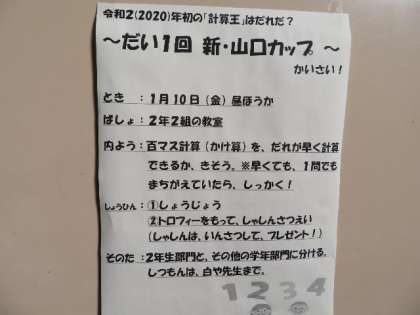 令和2(2020)年初の「計算王」はだれだ？
～だい1回 新・山口カップ ～
かいさい！
とき ：1月10日（金）昼ほうか
ばしょ：2年2組の教室
内よう：百マス計算（かけ算）を、だれが早く計算
できるか、きそう。※早くても、1問でも
まちがえていたら、しっかく！
しょうひん：①しょうじょう
②トロフィーをもって、しゃしんさつえい
（しゃしんは、いんさつして、プレゼント！）
そのた：2年生部門と、その他の学年部門に分ける。
しつもんは、白や先生まで。
1234